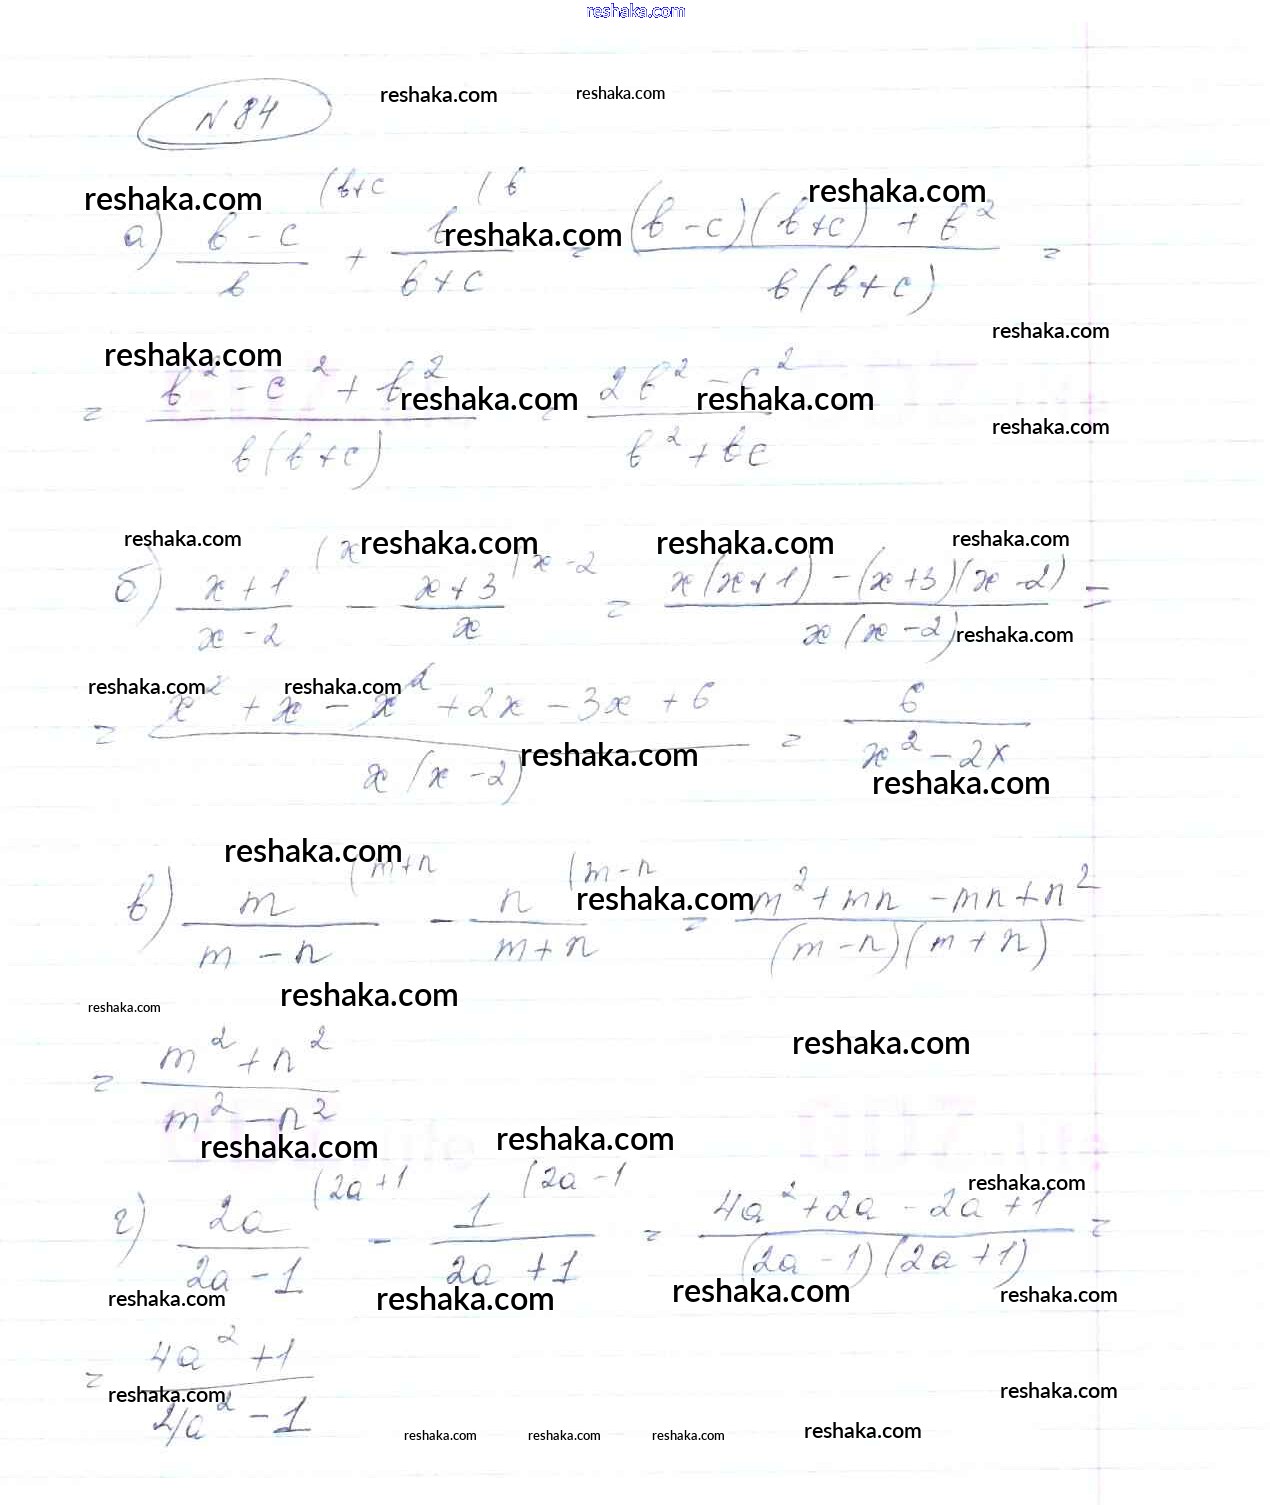 reshaka.com
№ 84
reshaka.com reshaka.com
reshaka.com (b+c (b reshaka.com
а) (b - c)/b + b/(b + c) = ((b - c)(b + c) + b²)/(b(b + c)) =
reshaka.com
reshaka.com
reshaka.com
= (b² - c² + b²)/(b(b + c)) = (2b² - c²)/(b² + bc)
reshaka.com reshaka.com
reshaka.com
reshaka.com (x reshaka.com (x - 2 reshaka.com reshaka.com
б) (x + 1)/(x - 2) - (x + 3)/x = (x(x + 1) - (x + 3)(x - 2))/(x(x - 2)) =
reshaka.com
reshaka.com reshaka.com
= (x² + x - x² + 2x - 3x + 6)/(x(x - 2)) = 6/(x² - 2x)
reshaka.com
reshaka.com
reshaka.com (m+n (m-n
в) m/(m - n) - n/(m + n) = (m² + mn - mn + n²)/((m - n)(m + n))
reshaka.com
reshaka.com reshaka.com
reshaka.com
= (m² + n²)/(m² - n²)
reshaka.com reshaka.com
(2a+1 (2a-1 reshaka.com
г) 2a/(2a - 1) - 1/(2a + 1) = (4a² + 2a - 2a + 1)/((2a - 1)(2a + 1)) =
reshaka.com reshaka.com reshaka.com reshaka.com
= (4a² + 1)/(4a² - 1)
reshaka.com reshaka.com
reshaka.com reshaka.com reshaka.com reshaka.com